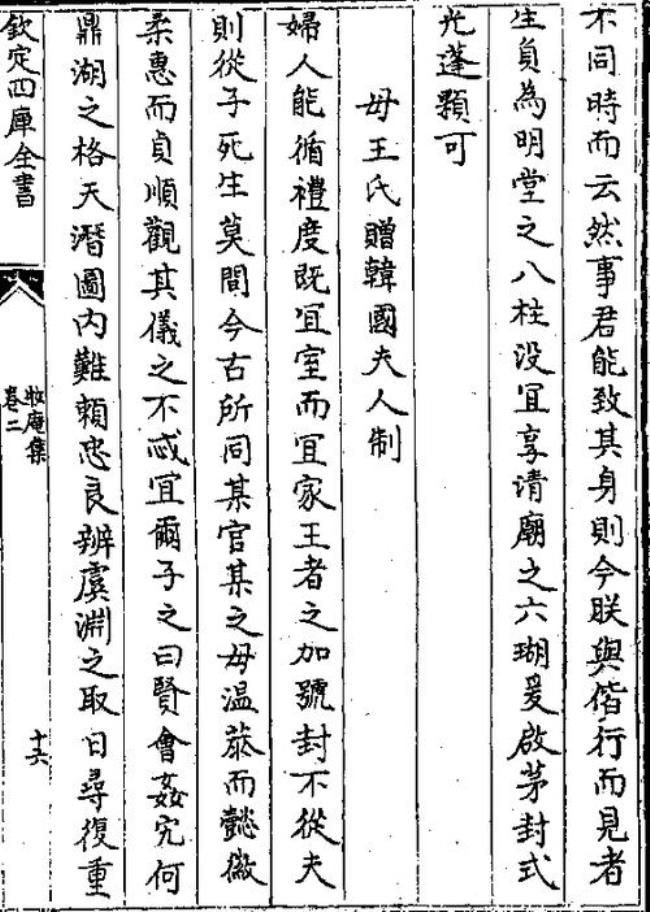 不同時而云然事君能致其身則今朕與偕行而見者
生負為明堂之八柱没宜享清廟之六瑚爰啟茅封式
光蓬顆可
母王氏贈韓國夫人制
婦人能循禮度既宜室而宜家王者之加號封不從夫
則從子死生莫間今古所同某官某之母温恭而懿徽
柔惠而貞順觀其儀之不忒宜爾子之曰賢會姦宄何
鼎湖之格天潛圖内難賴忠良辨虞淵之取日尋復重
欽定四庫全書
牧庵集
卷二
十六